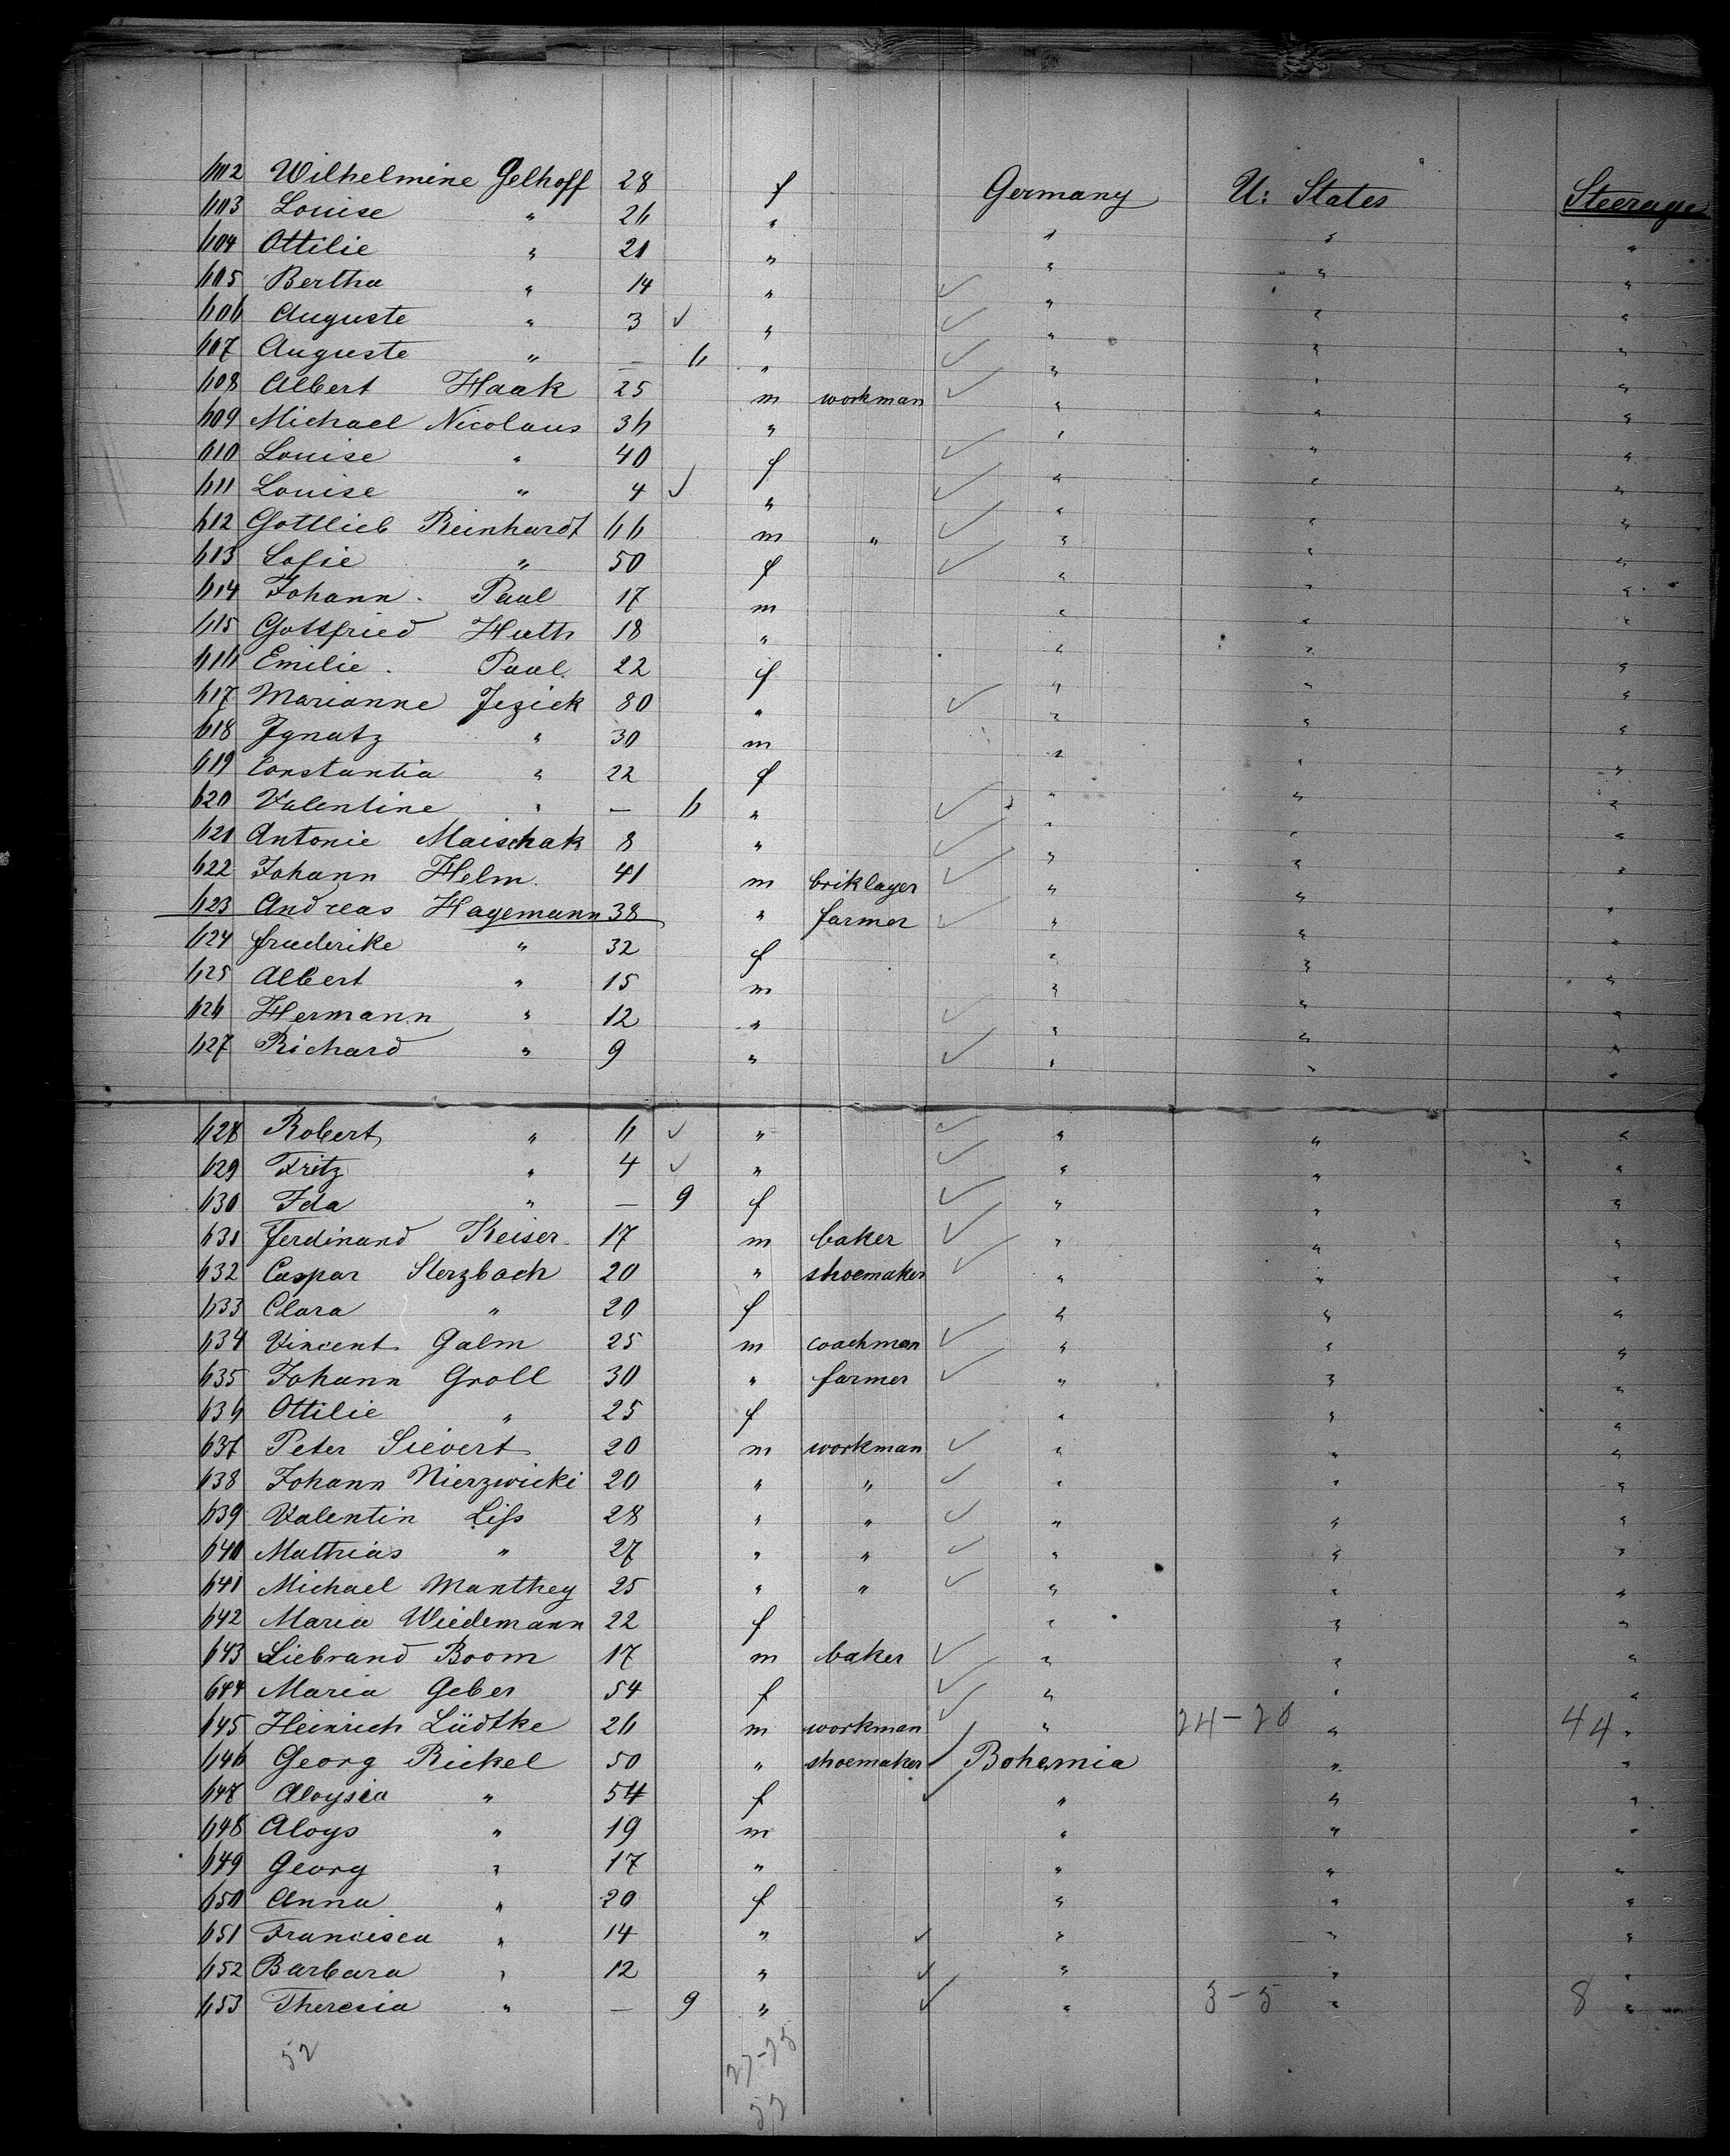 602 Wilhelmine Gelhoff 28 f Germany U: States Steerage
603 Louise " 26 " " " "
604 Ottilie " 21 " " " "
605 Bertha " 14 " ✓ " " "
606 Auguste " 3 ✓ " ✓ " " "
607 Auguste " — 6 " ✓ " " "
608 Albert Haak 25 m workman ✓ " " "
609 Michael Nicolaus 36 " " " "
610 Louise " 40 f ✓ " " "
611 Louise " 4 ✓ " ✓ " " "
612 Gottlieb Reinhardt 66 m " ✓ " " "
613 Sofie " 50 f ✓ " " "
614 Johann Paul 17 m " " "
615 Gottfried Huth 18 " " " "
616 Emilie Paul 22 f " " "
617 Marianne Jezick 80 " ✓ " " "
618 Ignatz " 30 m " " "
619 Constantia " 22 f " " "
620 Valentine " — 6 " ✓ " " "
621 Antonie Maischak 8 " ✓ " " "
622 Johann Helm 41 m briklayer ✓ " " "
623 Andreas Hagemann 38 " farmer ✓ " " "
624 Friederike " 32 f " " "
625 Albert " 15 m " " "
626 Hermann " 12 " ✓ " " "
627 Richard " 9 " ✓ " " "
628 Robert " 6 ✓ " ✓ " " "
629 Fritz " 4 ✓ " ✓ " " "
630 Ida " — 9 f ✓ " " "
631 Ferdinand Keiser 17 m baker ✓ " " "
632 Caspar Sterzbach 20 " shoemaker ✓ " " "
633 Clara " 20 f " " "
634 Vincent Galm 25 m coachman ✓ " " "
635 Johann Groll 30 " farmer ✓ " " "
636 Ottilie " 25 f " " "
637 Peter Sievert 20 m workman ✓ " " "
638 Johann Nierzwicki 20 " " ✓ " " "
639 Valentin Liss 28 " " ✓ " " "
640 Mathias " 27 " " ✓ " " "
641 Michael Manthey 25 " " ✓ " " "
642 Maria Wiedemann 22 f " " "
643 Liebrand Boom 17 m baker ✓ " " "
644 Maria Geber 54 f ✓ " " "
645 Heinrich Lüdtke 26 m workman ✓ " 24-20 " 44 "
646 Georg Rickel 50 " shoemaker ✓ Bohemia " "
647 Aloysia " 54 f ✓ " " "
648 Aloys " 19 m " " "
649 Georg " 17 " " " "
650 Anna " 20 f " " "
651 Francisca " 14 " ✓ " " "
652 Barbara " 12 " ✓ " " "
653 Theresia " — 9 " ✓ " 3-5 " 8 "
52
27-25